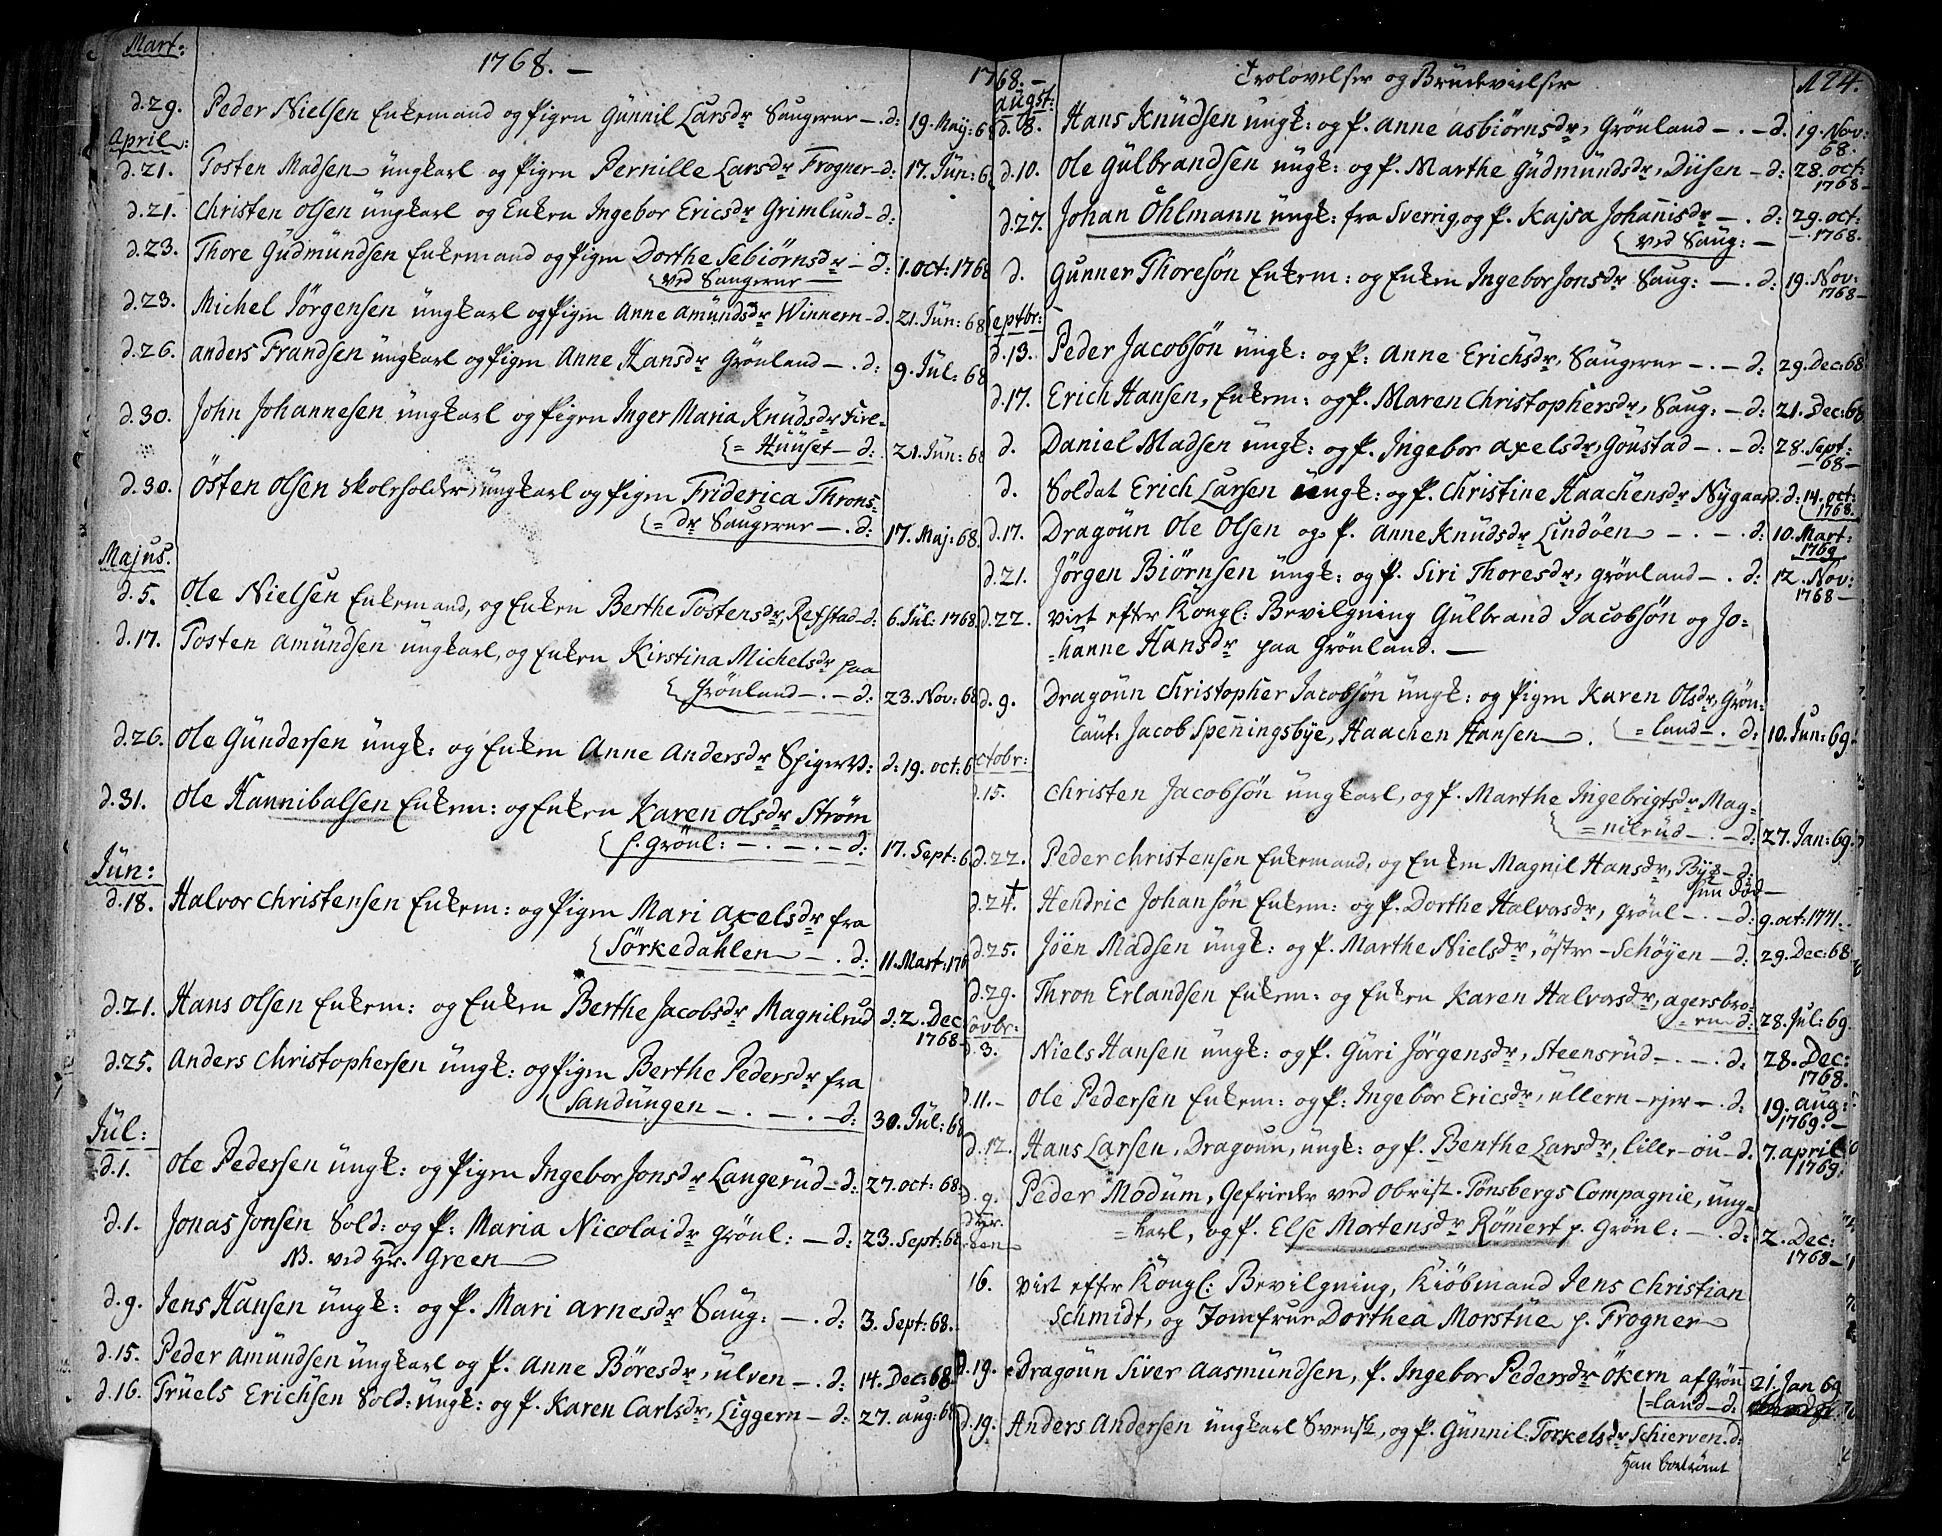 Mart:
1768. —
d. 29. Peder Nielsen Enkemand og Pigen Gunnil Larsdr Saugerne — d: 19. May: 68
April:
d. 21. Tosten Madsen ungkarl og Pigen Pernille Larsdr Frogner — d: 17. Jun: 6
d. 21. Christen Olsen ungkarl og Enken Ingebor Ericsdr Grimlund — d:
d. 23. Thore Gudmundsen Enkemand og Pigen Dorthe Sebiörnsdr — d: 1. oct: 1768
ved Saugerne —
d. 23. Michel Jörgensen ungkarl og Pigen Anne Amundsdr Winnern — d. 21. Jun: 68
d. 26. Anders Frandsen ungkarl og Pigen Anne Hansdr Grönland — . d: 9. Jul: 68
d. 30. John Johannesen ungkarl og Pigen Inger Maria Knudsdr Tire-
= Huuset — d: 21. Jun: 68
d. 30. Östen Olsen skoleholder, ungkarl og Pigen Friderica Throns-
= dr Saugerne — . d: 17. Maj: 68.
Majus.
d. 5. Ole Nielsen Enkemand, og Enken Berthe Tostensdr, Refstad — d: 6. Jul: 1768.
d. 17. Tosten Amundsen ungkarl, og Enken Kirstina Michelsdr paa
Grönland — . — d: 23. Nov: 68
d. 26. Ole Gundersen ungk: og Enken Anne Andersdr Spigerv: d: 19. oct: 6
d. 31. Ole Hannibalsen Enkem: og Enken Karen Olsdr Ström
p. Grönl: — . — . — d: 17. Sept: 6
Jun:
d. 18. Halvor Christensen Enkem: og Pigen Mari Axelsdr fra
Sörkedahlen — . d: 11. Mart: 176
d. 21. Hans Olsen Enkem: og Enken Berthe Jacobsdr Magnilrud d: 2. Dec
1768
d. 25. Anders Christophersen ungk: og Pigen Berthe Pedersdr fra
Sandungen — . — . — d: 30. Jul: 68
Jul:
d. 1. Ole Pedersen ungk: og Pigen Ingebor Jonsdr Langerud — d: 27. oct: 68
d. 1. Jonas Jonsen Sold: og P: Maria Nicolaidr Grönl: — d: 23. Sept: 68
NB. ved Hr. Green
d. 9. Jens Hansen ungk: og P. Mari Arnesdr Saug: — . d: 3. Sept: 68.
d. 15. Peder Amundsen ungkarl og P. Anne Böresdr, Ulven — . d: 14. Dec: 68
d. 16. Truels Erichsen Sold: ungk: og P. Karen Carlsdr, Liggern — d: 27. aug: 68
1768. — Trolovelser og Brudevielser 124.
augst:
d. 8. Hans Knudsen ungk: og P. Anne Asbiörnsdr, Grönland — . — d. 19. Nov:
68.
d. 10. Ole Gulbrandsen ungk: og P. Marthe Gudmundsdr, Diisen — d: 28. oct:
1768 —
d. 27. Johan Öhlmann ungk: fra Sverrig, og P. Kajsa Johannisdr — . d: 29. oct:
ved Saug: — 1768.
d. Gunner Thoresön Enkem: og Enken Ingebor Jonsdr Saug: — . d: 19. Nov:
1768 —
Septbr:
d. 13. Peder Jacobsön ungk: og P: Anne Erichsdr, Saugerne — . — d: 29. Dec: 68
d. 17. Erich Hansen, Enkem: og P. Maren Christophersdr, Saug: — d: 21. Dec: 68
d. Daniel Madsen ungk: og P. Ingebor Axelsdr, Goustad — . — d: 28. Sept:
— 68 —
d. Soldat Erich Larsen ungk: og P. Christine Haachensdr Nygaard. d: 14. oct:
1768.
d. 17. Dragoun Ole Olsen og P. Anne Knudsdr Lindöen — . — . d: 10. Mart:
1769
d. 21. Jörgen Biörnsen ungk: og P. Siri Thoresdr, Grönland — . d: 12. Nov:
1768 —
d. 22. viet efter Köngl: Bevilgning Gulbrand Jacobsön og Jo-
= hanne Hansdr paa Grönland. —
d. 9. Dragoun Christopher Jacobsön ungk: og Pigen Karen Olsdr, Grön-
Caut: Jacob Spenningsbye, Haachen Hansen = land . d: 10. Jun: 69.
Octobr:
d. 15. Christen Jacobsön ungkarl, og P. Marthe Ingebrigtsdr Mag-
= nilrud — . — d: 27. Jan: 69.
d. 22. Peder Christensen Enkemand, og Enken Magnil Hansdr, Bye — d:
hun död —
d. 24. † Hendric Johansön Enkem: og P. Dorthe Halvorsdr, Grönl — . — d: 9. oct: 1771.
d. 25. Jöen Madsen ungk: og P. Marthe Nielsdr, öster-Schöyen — d: 29. Dec: 68
d. 29. Thron Erlandsen Enkem: og Enken Karen Halvorsdr, agersbro-
= en — d: 28. Jul: 69.
Novbr:
d. 3. Niels Hansen ungk: og P. Guri Jörgensdr, Steensrud — . — . d: 28. Dec:
1768.
d. 11. Ole Pedersen Enkem: og P: Ingebor Ericsdr, Ullern-ejer — . d: 19. aug:
1769. —
d. 12. Hans Larsen, Dragoun, ungk: og P. Benthe Larsdr, lille-öu — d. 7. april
1769.
d. 9. Peder Modum, Gefrieder ved Obrist. Tönsbergs Compagnie, ung-
d Hr. Green = karl, og P. Else Mortensdr Römert p. Grönl: — . d: 2. Dec:
1768 —
16. viet efter Köngl: Bevilgning, Kiöbmand Jens Christian
Schmidt, og Jomfrue Dorthea Morstue p. Frogner
d. 19. Dragoun Siver Aasmundsen, P. Ingebor Pedersdr Ökern af Grön 21. Jan 69
= land — d:
d. 19. Anders Andersen ungkarl Svensk, og P. Gunnil Torkelsdr Schierven. d:
Han bortrömt